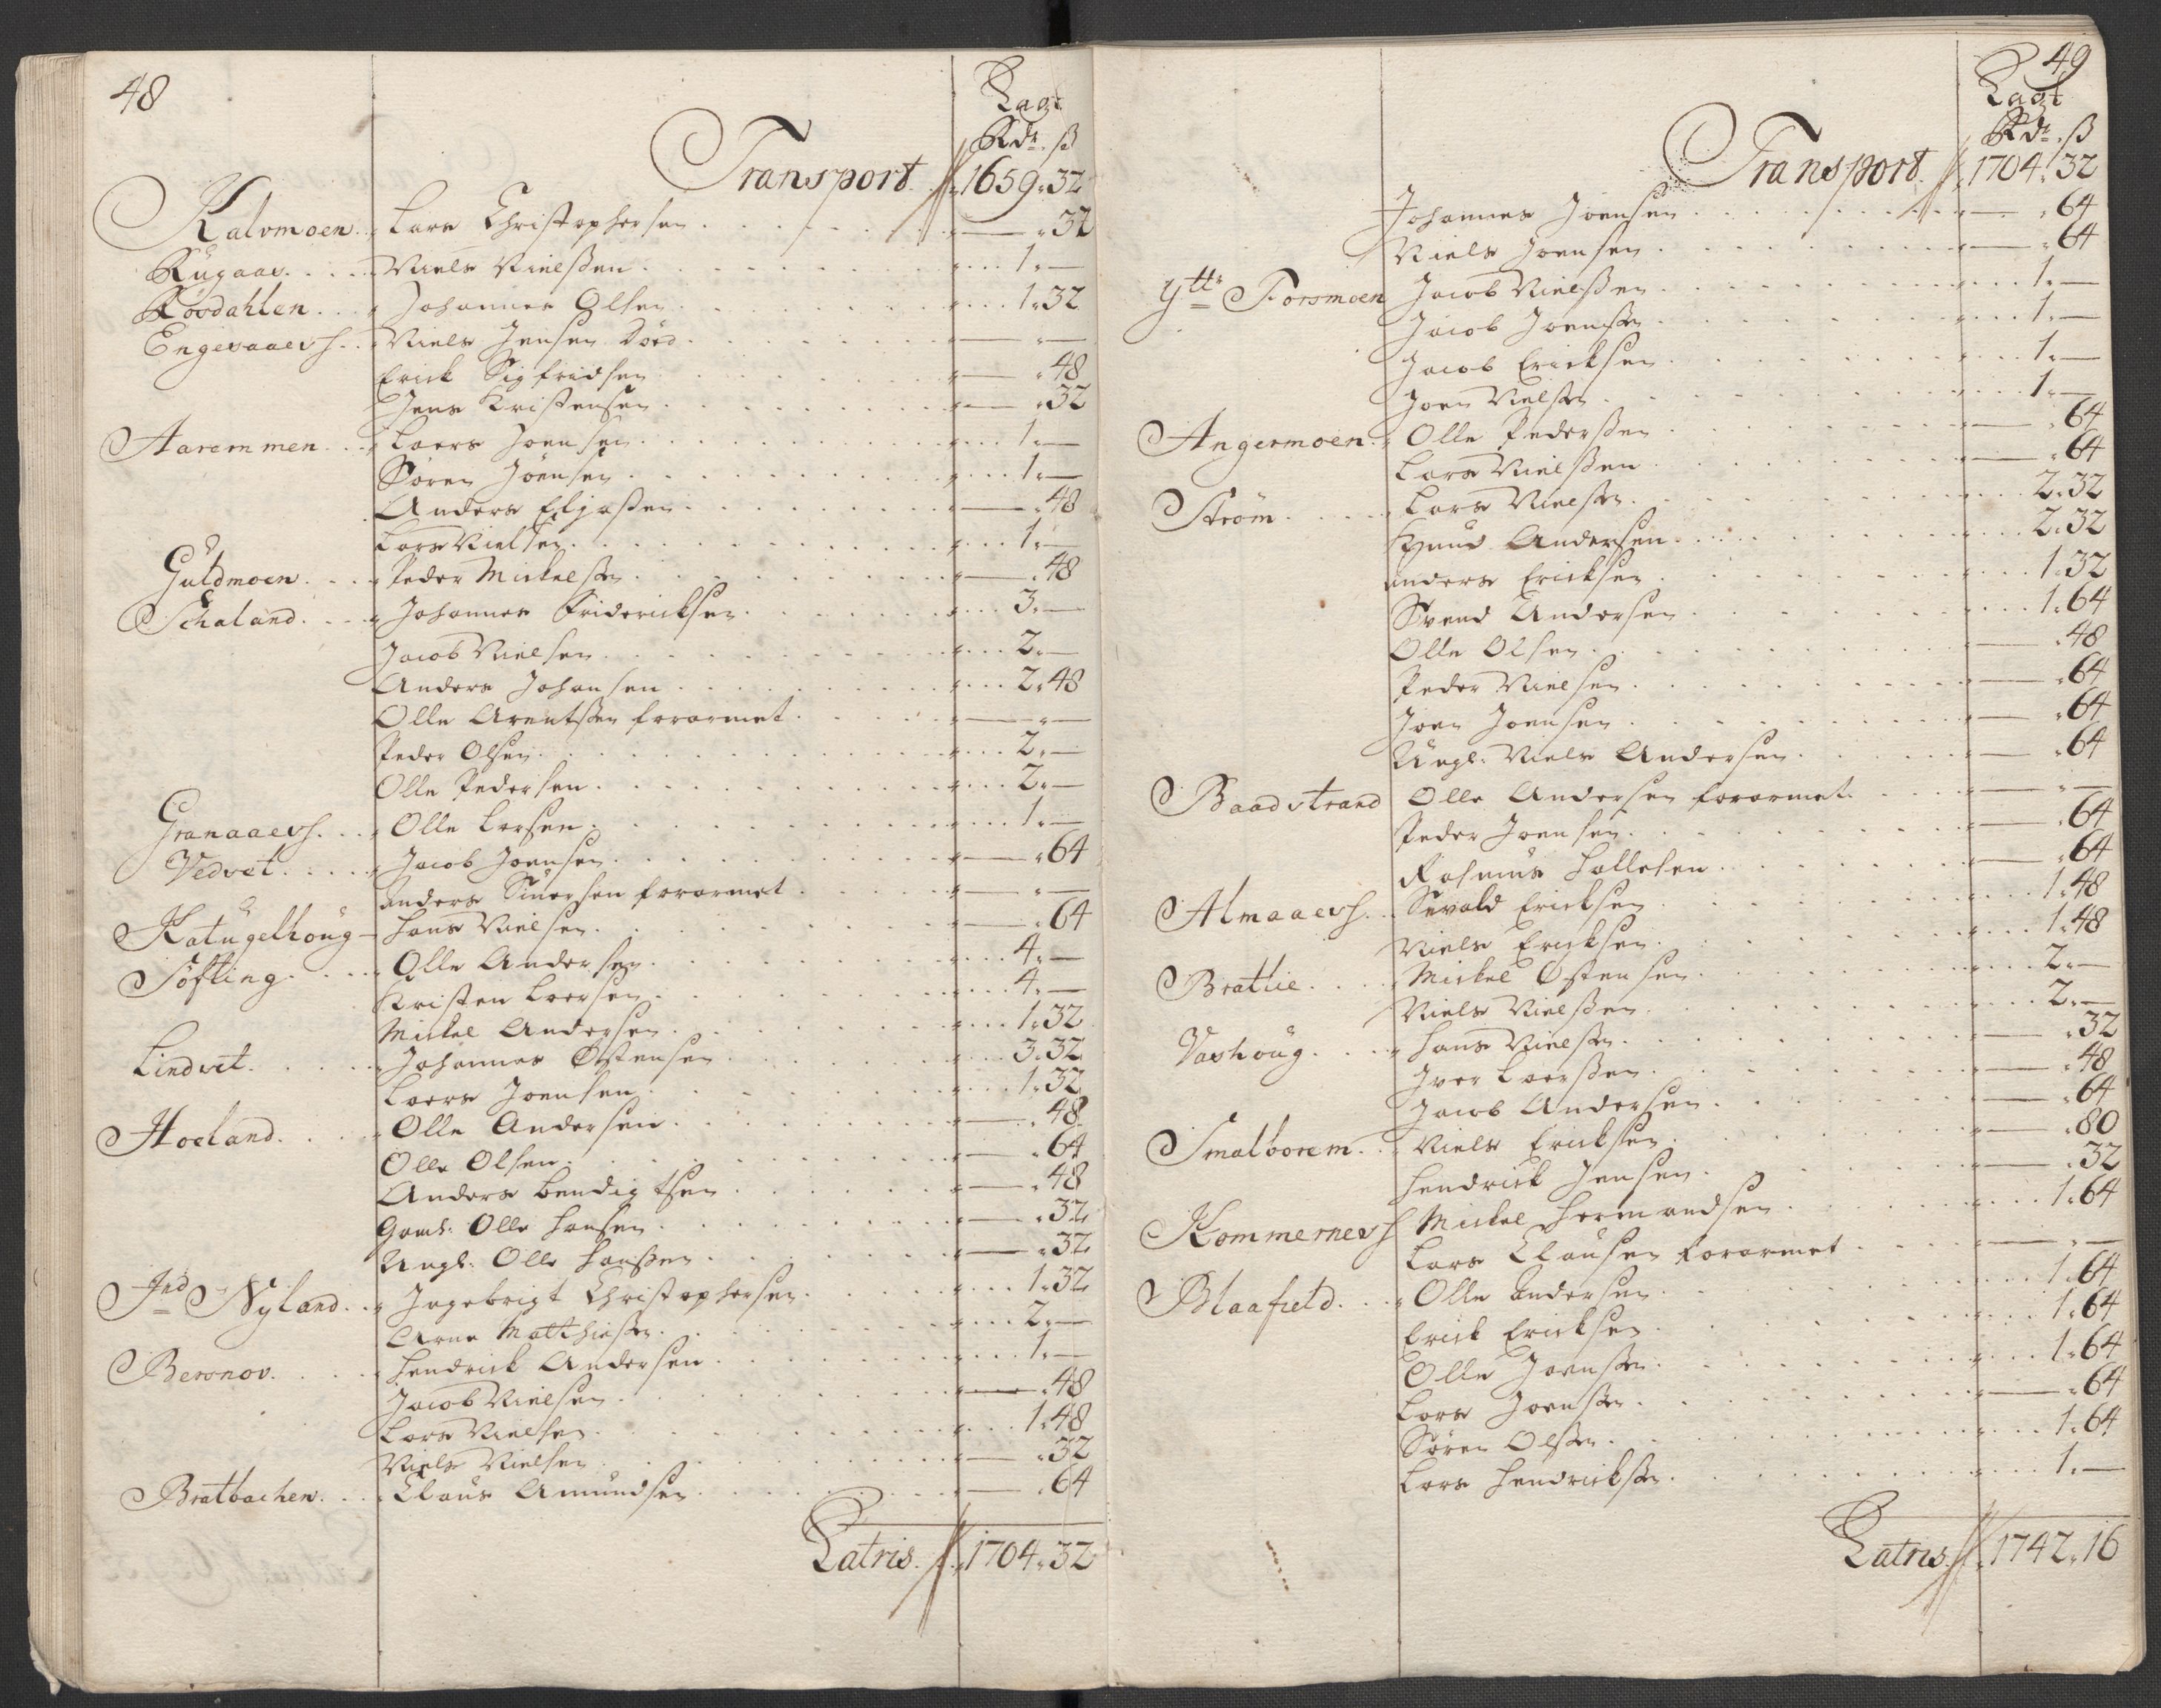 48
Lagt
Rdr. ß
Transport 1659 " 32
Kalvmoen Lars Christophersen " 32
Rügaas Niels Nielßen 1 " —
Rosdahlen Johannes Olsen 1 " 32
Engesaaesh Niels Jensen Död — " —
Erick Sigfridsen " 48
Jens Kristensen " 32
Aaremmen Laers Joensen 1 " —
Sören Jöensen 1 " —
Anders Eljaßen " 48
Lars Nielsen 1 " —
Güldmoen Peder Mickelßen " 48
Schaland Johannes Fridericksen 3 " —
Jacob Nielsen 2 " —
Anders Johansen 2 " 48
Olle Arentßen forarmet — " —
Peder Olsen 2 " —
Olle Pedersen 2 " —
Granaaesh Olle Larsen 1 " —
Vedvet Jacob Joensen " 64
Anders Siuersen forarmet — " —
Katügelhoüg Hans Nielsen " 64
Söfting Olle Andersen 4 " —
Kristen Laersen 4 " —
Mickel Andersen 1 " 32
Lindset Johannes Østensen 3 " 32
Laers Joensen 1 " 32
Hoeland Olle Andersen " 48
Olle Olsen " 64
Anders Bendigtsen " 48
Gaml: Olle Hansen " 32
Ungl: Olle Hanßen " 32
Ind Nyland Ingebrigt Christophersen 1 " 32
Arne Matthießen 2 " —
Beronov Hendrick Andersen 1 " —
Jacob Nielsen " 48
Lars Nielsen 1 " 48
Niels Nielsen " 32
Bratbachen Claus Amundsen " 64
Latris 1704 " 32
49
Lagt
Rdr. ß
Transport 1704 " 32
Johannes Joensen " 64
Niels Joensen " 64
Ytt: Forsmoen Jacob Nielßen 1 " —
Jacob Joenßen 1 " —
Jacob Ericksen 1 " —
Joen Nielßen 1 " —
Angermoen Olle Pederßen " 64
Lars Nielßen " 64
Ström Lars Nielßen 2 " 32
Knud Andersen 2 " 32
Anders Ericksen 1 " 32
Svend Andersen 1 " 64
Olle Olsen " 48
Peder Nielsen " 64
Joen Joensen " 64
Ungl: Niels Andersen " 64
Baadstrand Olle Andersen forarmet — " —
Peder Joensen " 64
Rasmus Hallesen " 64
Almaaesh Sivald Ericksen 1 " 48
Niels Ericksen 1 " 48
Brattlie Mickel Østensen 2 " —
Niels Nielßen 2 " —
Vashoüg Hans Nielßen " 32
Iver Laerßen " 48
Jacob Andersen " 64
Smalborem Niels Ericksen " 80
Hendrick Jensen " 32
Kommernesh Mickel Hermandsen 1 " 64
Lars Clausen forarmet — " —
Blaafield Olle Andersen 1 " 64
Erick Ericksen 1 " 64
Olle Joenßen 1 " 64
Lars Joenßen " 64
Sören Olßen 1 " 64
Lars Hendrickßen 1 " —
Latris 1742 " 16